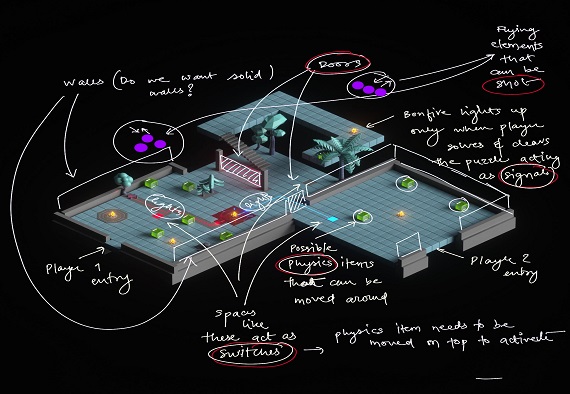 Flying
elements
that
can be
shot
Doors
walls (Do we want solid)
walls?
Bonfire lights up
only when player
solves & clears
the puzzle acting
as signal
Player 1
entry
Possible
physics items
that can be
moved around
Player 2
entry
spaces
like
these act as
switches → physics item needs to be
moved on top to activate